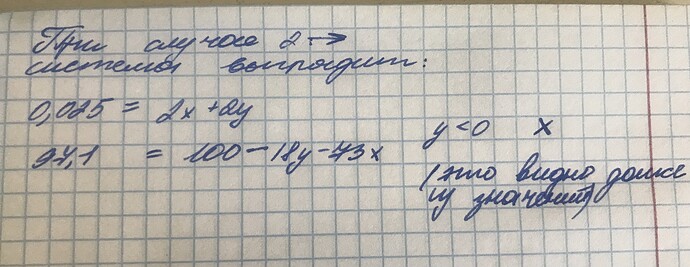 При случае 2 →
система выглядит:
0,025 = 2x + 2y
97,1 = 100 - 18y - 73x
y < 0 X
(это видно даже
из значений)